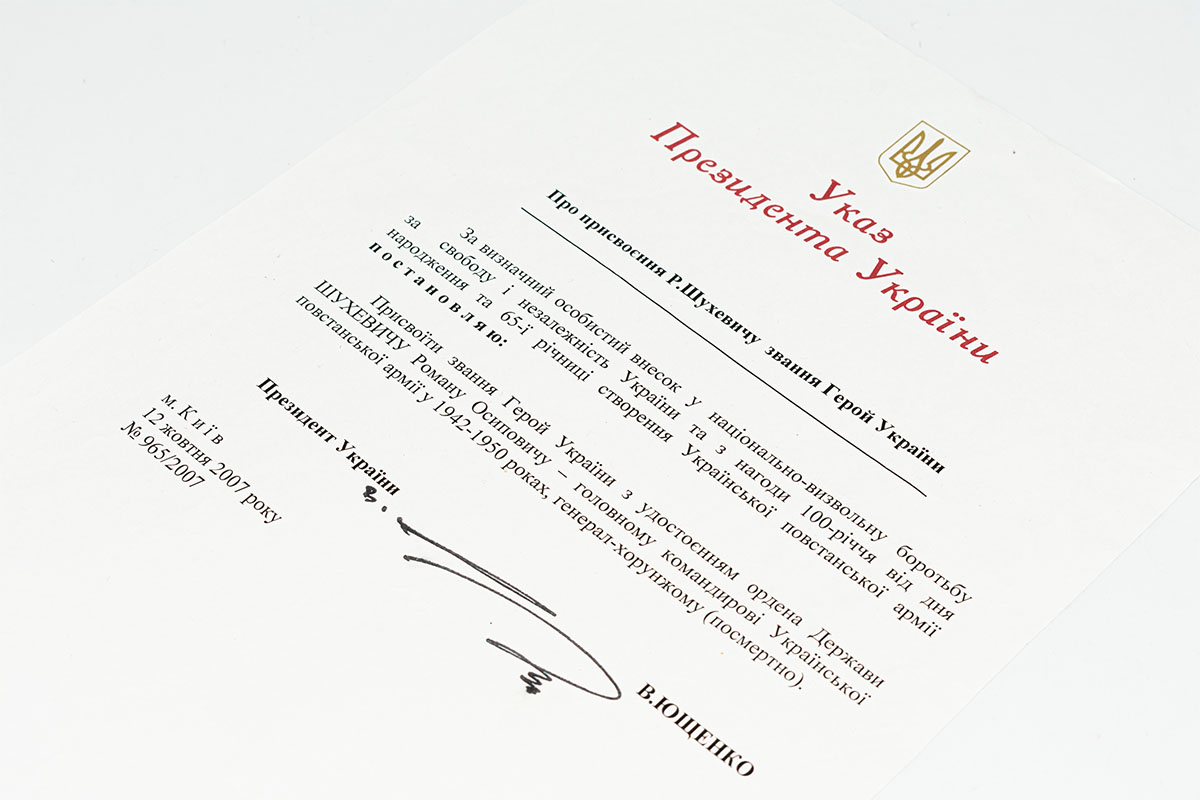 Указ
Президента України
Про присвоєння Р.Шухевичу звання Герой України
За визначний особистий внесок у національно-визвольну боротьбу
за свободу і незалежність України та з нагоди 100-річчя від дня
народження та 65-ї річниці створення Української повстанської армії
постановляю:
Присвоїти звання Герой України з удостоєнням ордена Держави
ШУХЕВИЧУ Роману Осиповичу – головному командирові Української
повстанської армії у 1942-1950 роках, генерал-хорунжому (посмертно).
Президент України
В.ЮЩЕНКО
м. Київ
12 жовтня 2007 року
№ 965/2007